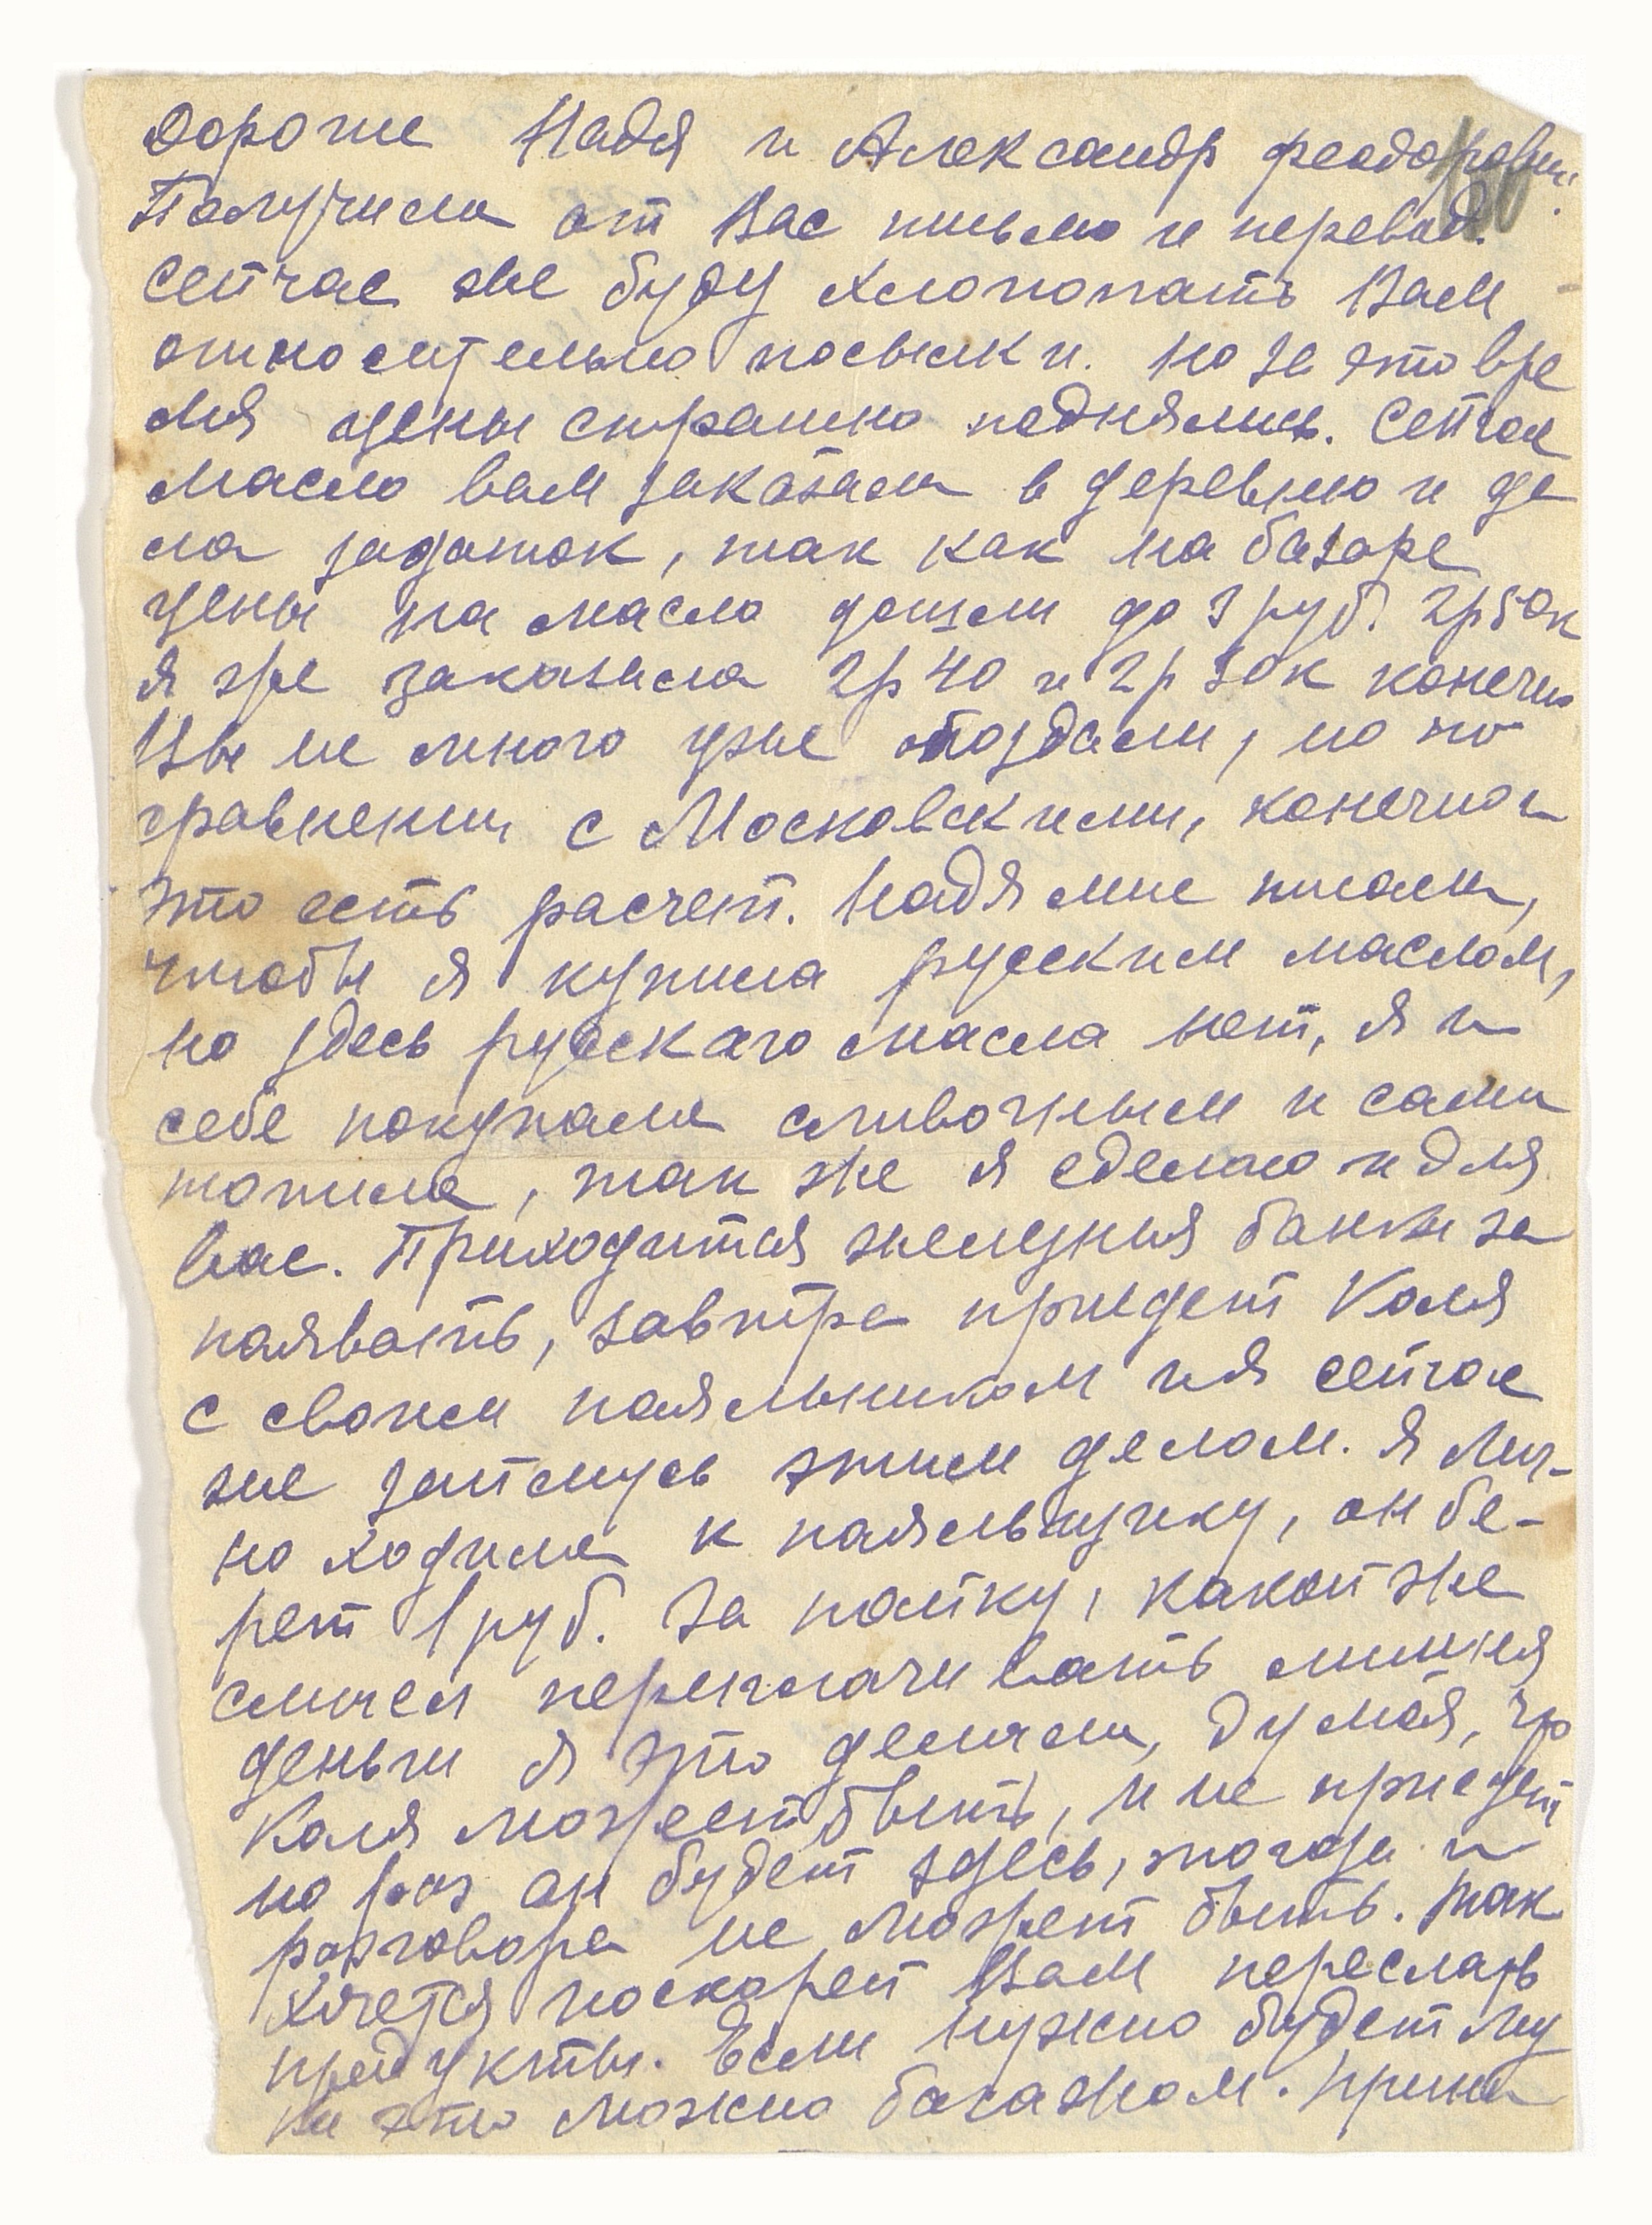 Дорогие Надя и Александр Феодорович.
Палучила от Вас письмо и перевод.
Сейчас же буду хлопопать Вам
относительно посылки. но за это вре
мя цены страшно поднялись. Сейчас
масло вам заказала в деревню и да
ла задаток, так как на базаре
цены на масло дошли до 3 руб. 2р 50к
я же заказала 2р 40 и 2р 30к конечно
Вы не много уже опоздали, но по
сравнении с Московскими, конечно и
это есть расчет. Надя мне писали,
чтобы я купила русским маслом,
но здесь русскаго масла нет, я и
себе покупала сливочным и сами
топила, так же я сделаю и для
вас. Приходится железныя банки за
паявать, завтра приедет Коля
с своим паяльником и я сейчас
же займусь этим делом. Я лич-
но ходила к паяльщику, он бе-
рет 1 руб. за пайку, какой же
смысел переплачивать лишния
деньги я это делала, думая, что
Коля может быть, и не приедет
но раз он будет здесь, тогда и
разговора не может быть. Так
хочется поскорей Вам переслать
продукты. Если нужно будет му
ки это можно багажом. Приш